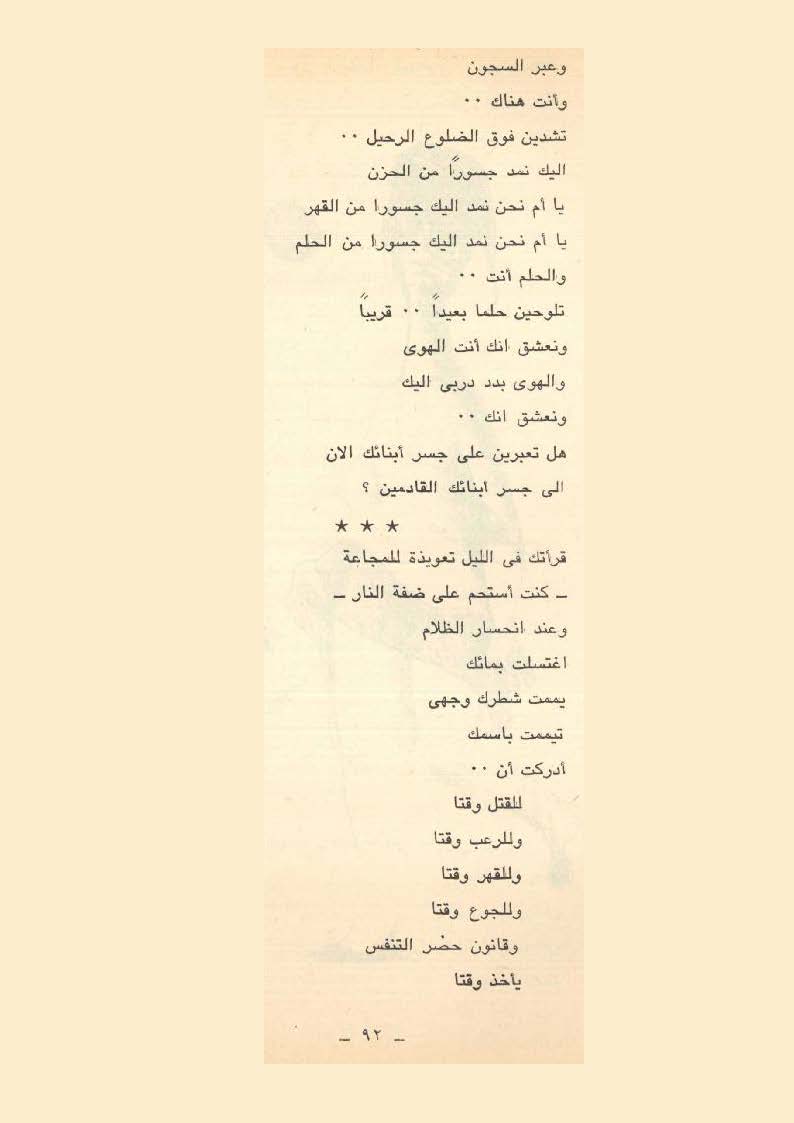 وعبر السجون
وأنت هناك ٠٠
تشدين فوق الضلوع الرحيل ٠٠
اليك نمد جسوراً من الحزن
يا أم نحن نمد اليك جسورا من القهر
يا أم نحن نمد اليك جسورا من الحلم
والحلم أنت ٠٠
تلوحين حلما بعيداً ٠٠ قريباً
ونعشق انك أنت الهوى
والهوى بدد دربى اليك
ونعشق انك ٠٠
هل تعبرين على جسر أبنائك الان
الى جسر ابنائك القادمين ؟
★ ★ ★
قرأتك فى الليل تعويذة للمجاعة
ـ كنت أستحم على ضفة النار ـ
وعند انحسار الظلام
اغتسلت بمائك
يممت شطرك وجهى
تيممت باسمك
أدركت أن ٠٠
للقتل وقتا
وللرعب وقتا
وللقهر وقتا
وللجوع وقتا
وقانون حضر التنفس
يأخذ وقتا
ـ ٩٢ ـ